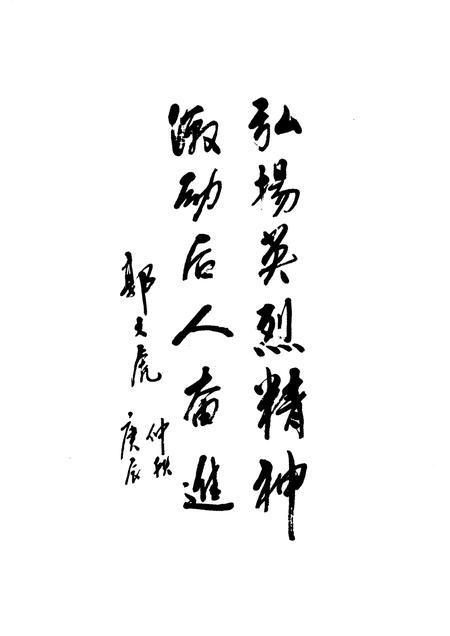 弘揚英烈精神
激励后人奋進
郭文虎
庚辰
仲秋